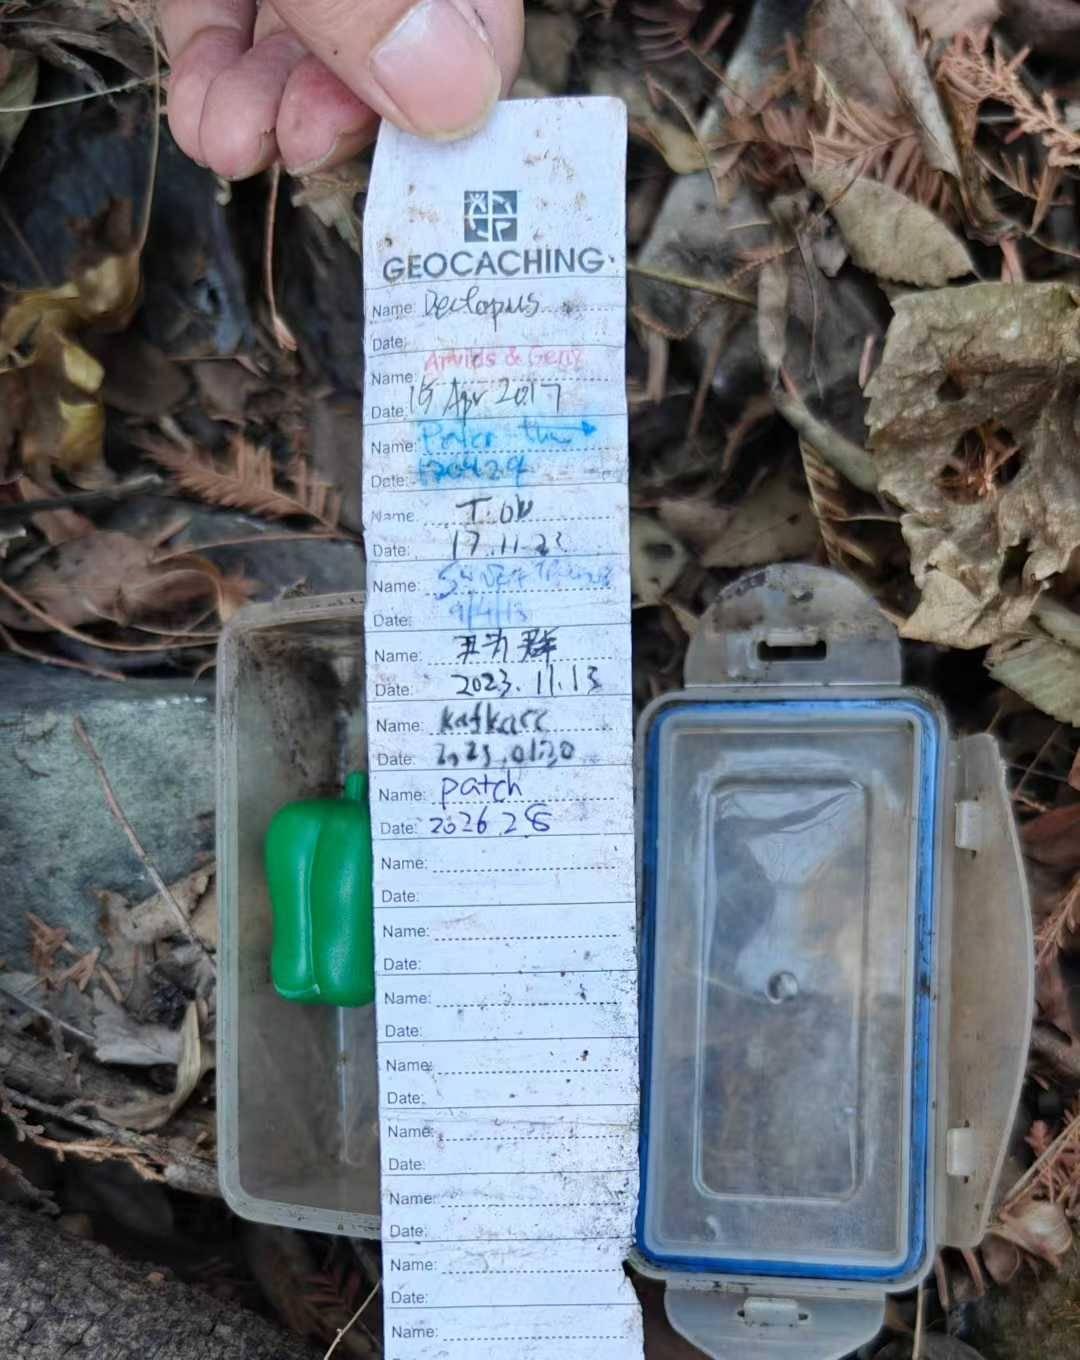 GEOCACHING
Name: Declopus
Date:
Name: Arvids & Gerry
Date: 15 Apr 2017
Name: Peter
Date: 170429
Name:
Date: 17.11.23
Name:
Date: 9/4/13
Name: 尹为群
Date: 2023.11.13
Name: kafkacc
Date: 2025.01.30
Name: patch
Date: 2026.2.8
Name:
Date:
Name:
Date:
Name:
Date:
Name:
Date:
Name:
Date:
Name:
Date:
Name:
Date:
Name: